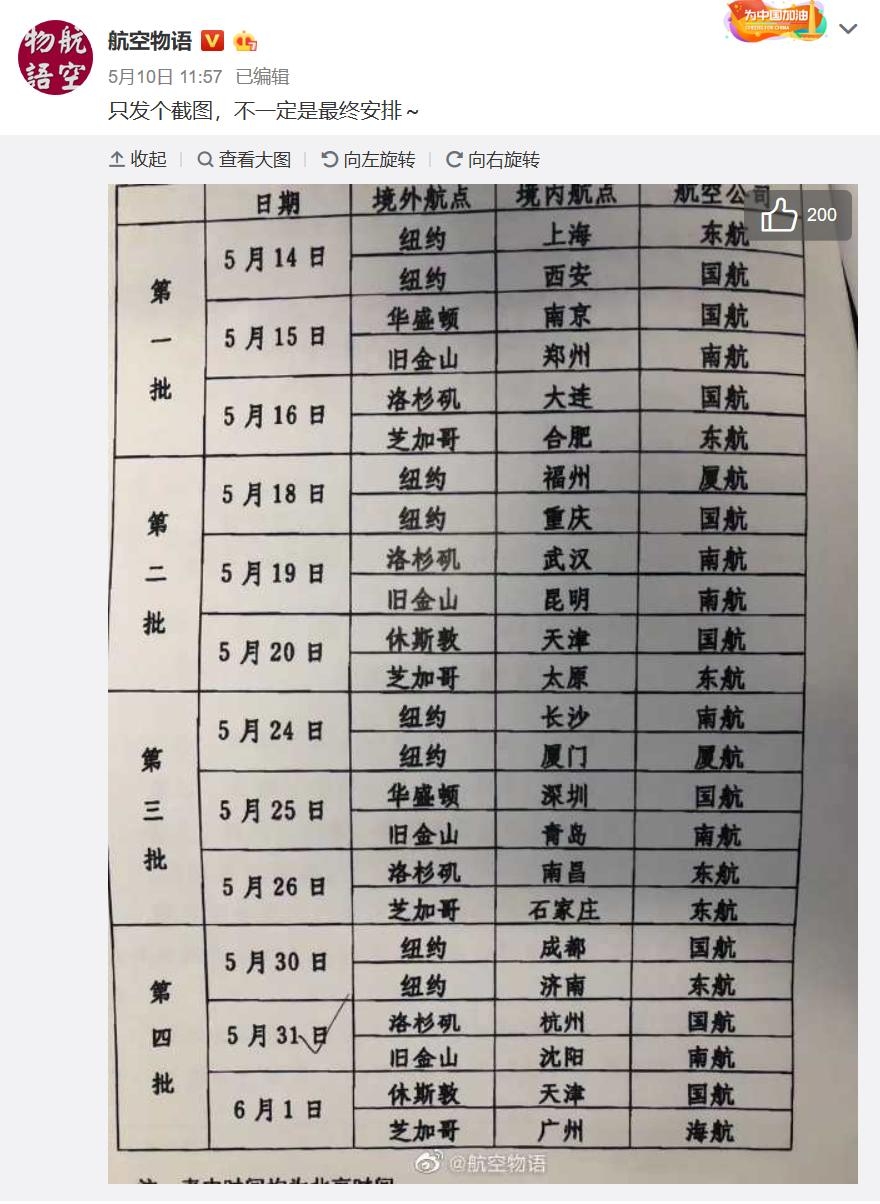 航空物语
物航
語空
5月10日 11:57 已编辑
为中国加油
只发个截图，不一定是最终安排~
收起 查看大图 向左旋转 向右旋转
200
日期 境外航点 境内航点 航空公司
第一批
5月14日 纽约 上海 东航
纽约 西安 国航
5月15日 华盛顿 南京 国航
旧金山 郑州 南航
5月16日 洛杉矶 大连 国航
芝加哥 合肥 东航
第二批
5月18日 纽约 福州 厦航
纽约 重庆 国航
5月19日 洛杉矶 武汉 南航
旧金山 昆明 南航
5月20日 休斯敦 天津 国航
芝加哥 太原 东航
第三批
5月24日 纽约 长沙 南航
纽约 厦门 厦航
5月25日 华盛顿 深圳 国航
旧金山 青岛 南航
5月26日 洛杉矶 南昌 东航
芝加哥 石家庄 东航
第四批
5月30日 纽约 成都 国航
纽约 济南 东航
5月31日 洛杉矶 杭州 国航
旧金山 沈阳 南航
6月1日 休斯敦 天津 国航
芝加哥 广州 海航
@航空物语